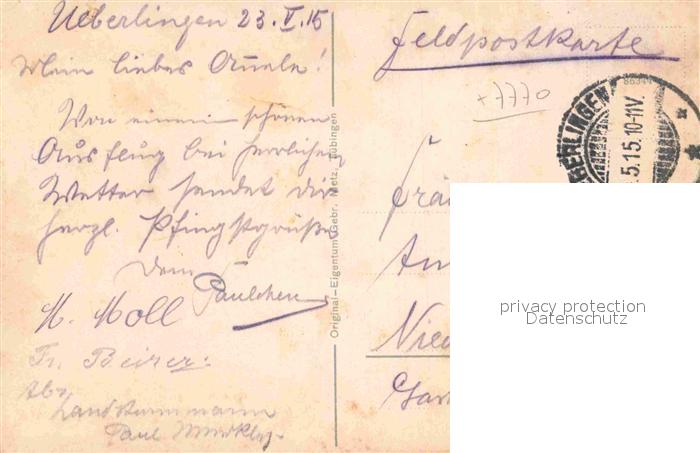 Ueberlingen 23. V. 15
Mein liebes Amele!
Von einem schönen
Ausflug bei herrlichem
Wetter sendet dir
herzl. Pfingstgrüße
Dein
Paulchen
M. Moll
Fr. Beirer.
Abs.
Landsturmmann
Paul
Original-Eigentum Gebr. Metz, Tübingen
Feldpostkarte
+7770
86344
5.15.10-11V.
privacy protection
Datenschutz